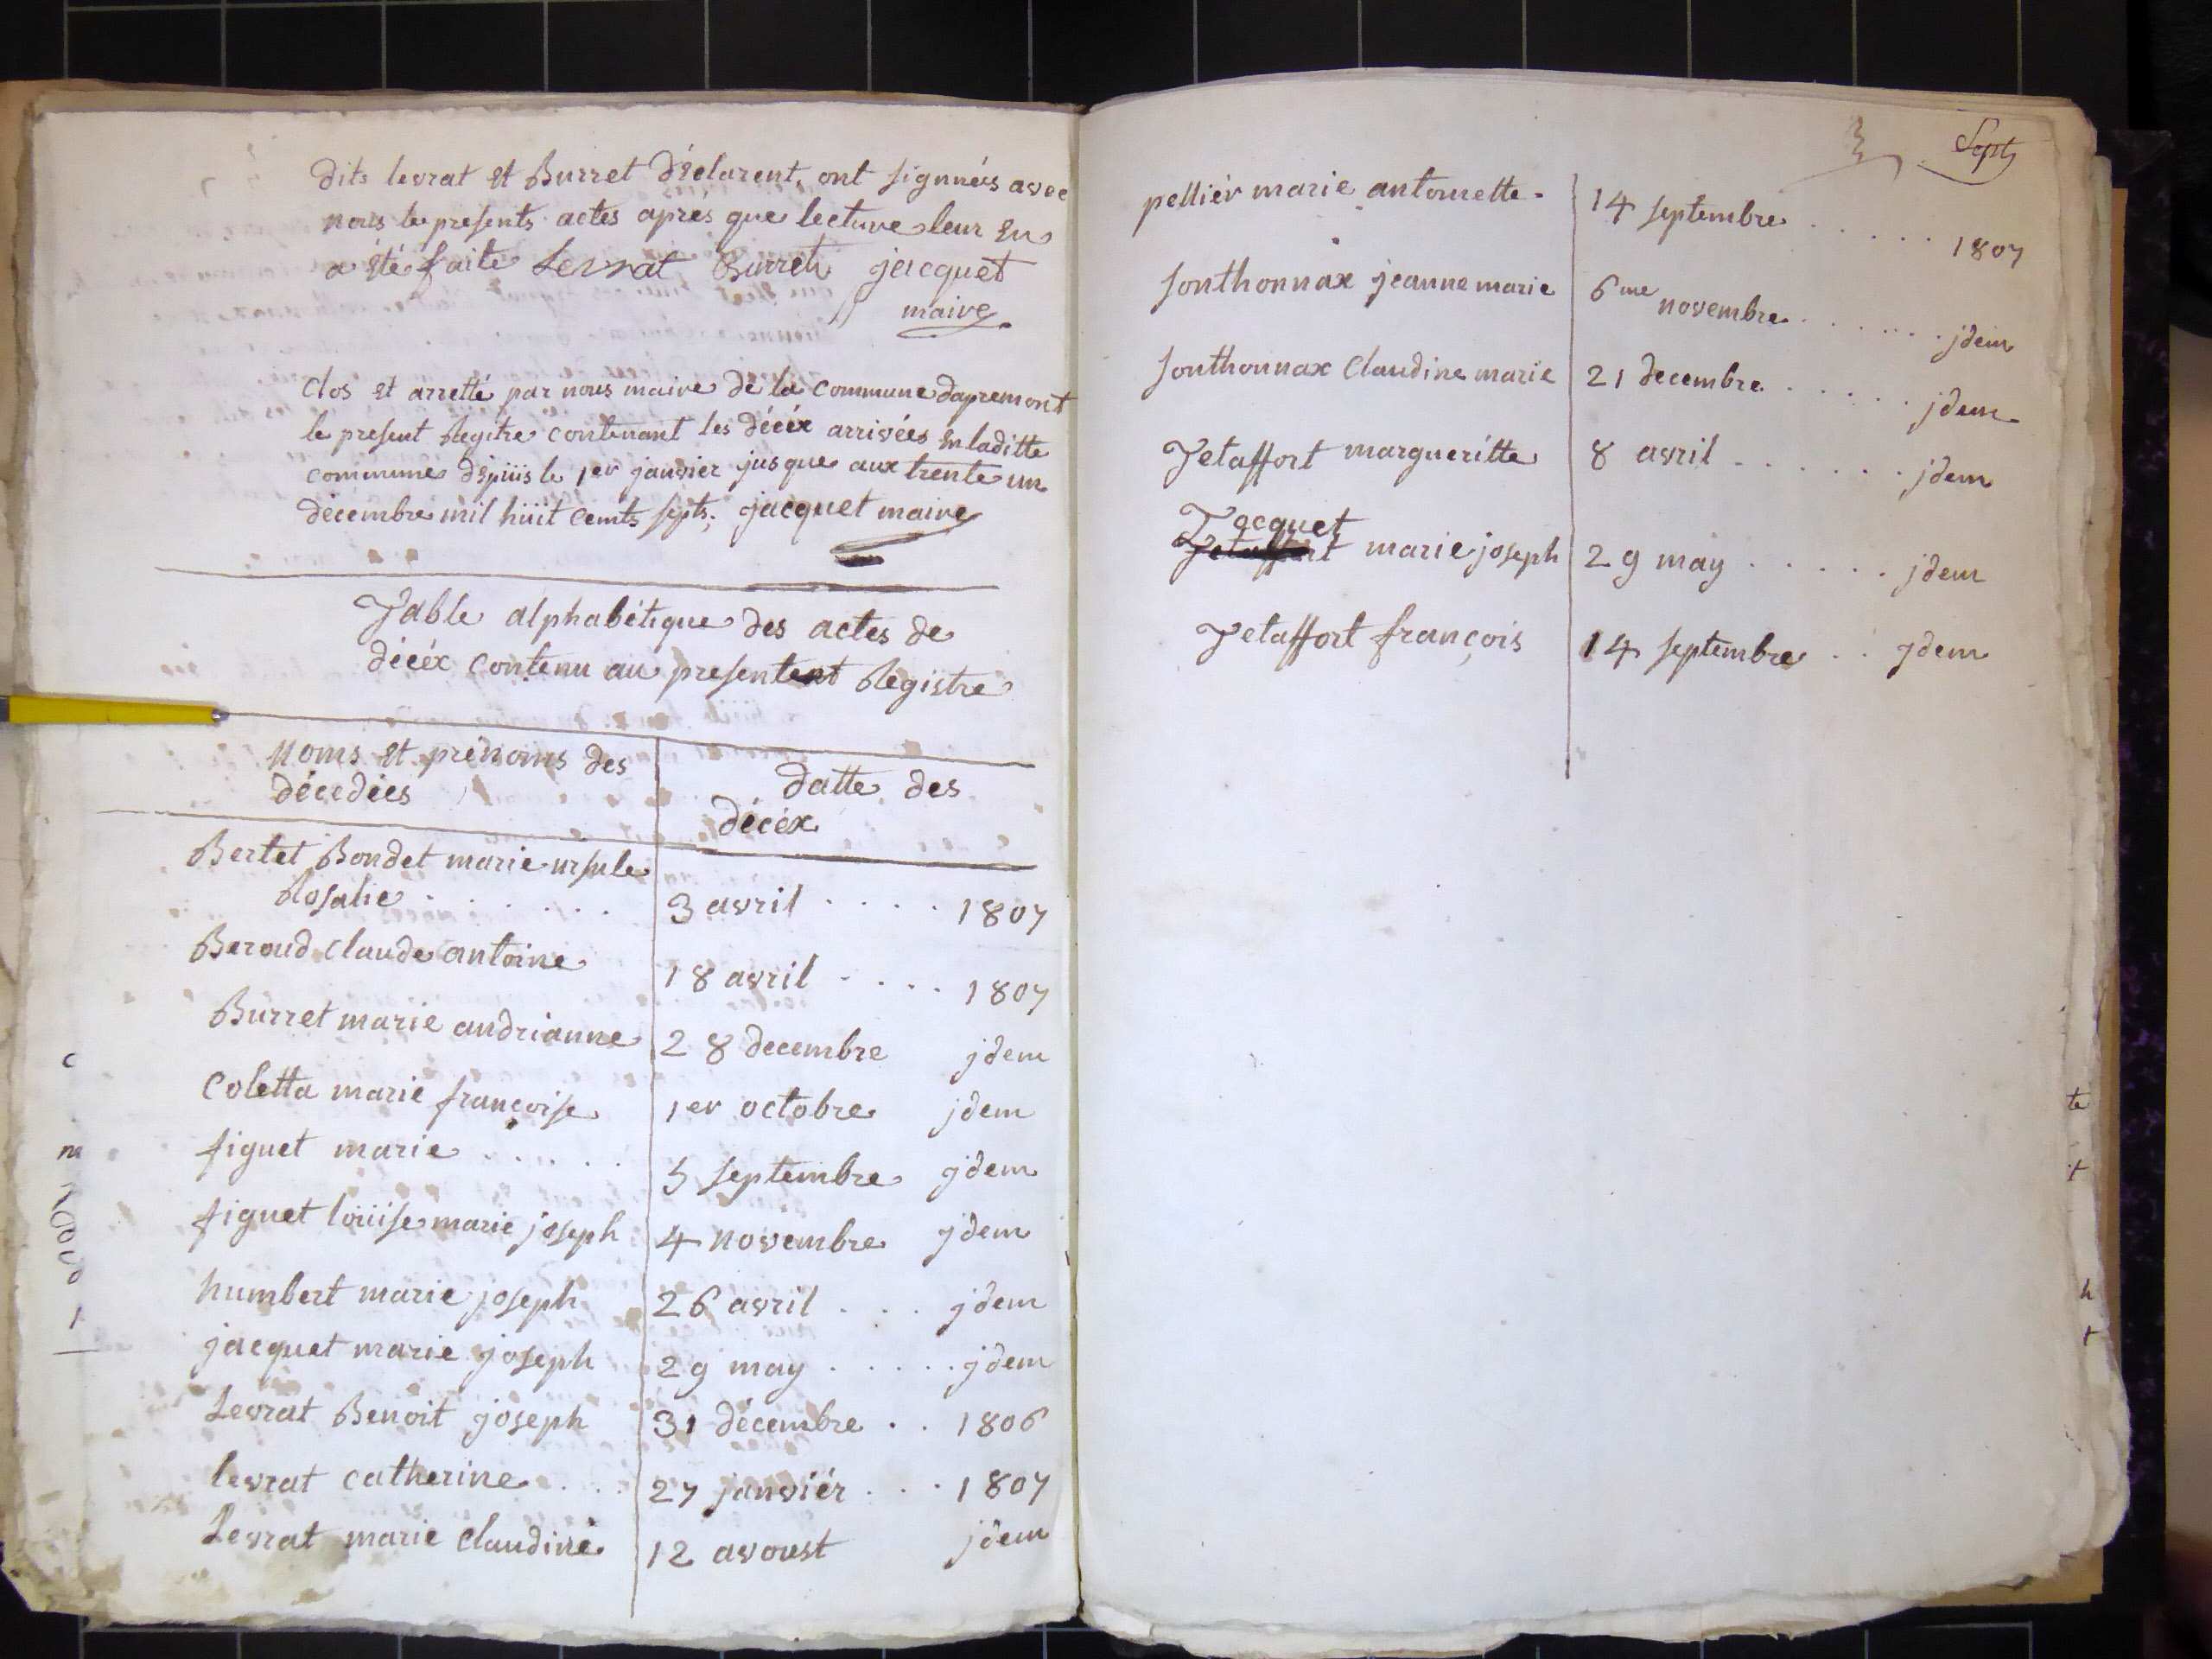 dits levrat et Burret déclarent, ont signnéés avec
nous les presents actes aprés que lecture leur en
a été faite Levrat Burret jacquet
maire
Clos et arretté par nous maire de la Commune dapremont
le present Regitre contenant les décéx arrivéés en laditte
commune dépüis le 1er janvier jusque aux trente un
décembre mil hüit cents septs; jacquet maire
Table alphabétique des actes de
décéx contenu au presentent Registre
noms et prénoms des
décedéés
datte des
décéx
Bertet Bondet marie ursule
Rosalie . . . . . . 3 avril . . . . 1807
Beroud Claude antoine 18 avril . . . . 1807
Burret marie andrianne 28 decembre jdem
Coletta marie françoise 1er octobre jdem
figuet marie . . . . . 5 septembre jdem
figuet loüise marie joseph 4 novembre jdem
humbert marie joseph 26 avril . . . jdem
jacquet marie joseph 29 may . . . . . jdem
Levrat Benoit joseph 31 décembre . . 1806
levrat catherine . . . 27 janviér . . . 1807
Levrat marie Claudine 12 avoust jdem
Sept
pelliér marie antoinette - 14 septembre . . . . . 1807
Sonthonnax jeanne marie 6me novembre . . . . . . jdem
Sonthonnax Claudine marie 21 decembre . . . . . . jdem
Tetaffort margueritte 8 avril . . . . . . . jdem
Jocquet
Tetaffort marie joseph 29 may . . . . . . jdem
Tetaffort françois 14 septembre . . jdem